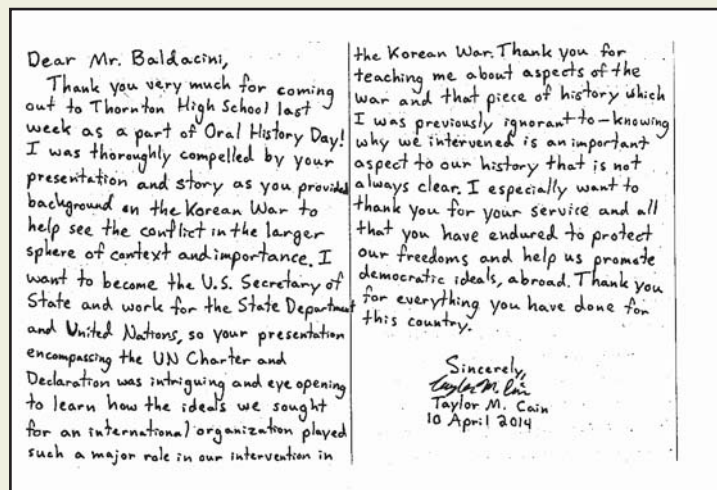 Dear Mr. Baldacini,
Thank you very much for coming
out to Thornton High School last
week as a part of Oral History Day!
I was thoroughly compelled by your
presentation and story as you provided
background on the Korean War to
help see the conflict in the larger
sphere of context and importance. I
want to become the U.S. Secretary of
State and work for the State Department
and United Nations, so your presentation
encompassing the UN Charter and
Declaration was intriguing and eye opening
to learn how the ideals we sought
for an international organization played
such a major role in our intervention in
the Korean War. Thank you for
teaching me about aspects of the
war and that piece of history which
I was previously ignorant to-knowing
why we intervened is an important
aspect to our history that is not
always clear. I especially want to
thank you for your service and all
that you have endured to protect
our freedoms and help us promote
democratic ideals, abroad. Thank you
for everything you have done for
this country.
Sincerely,
Taylor M. Cain
Taylor M. Cain
10 April 2014